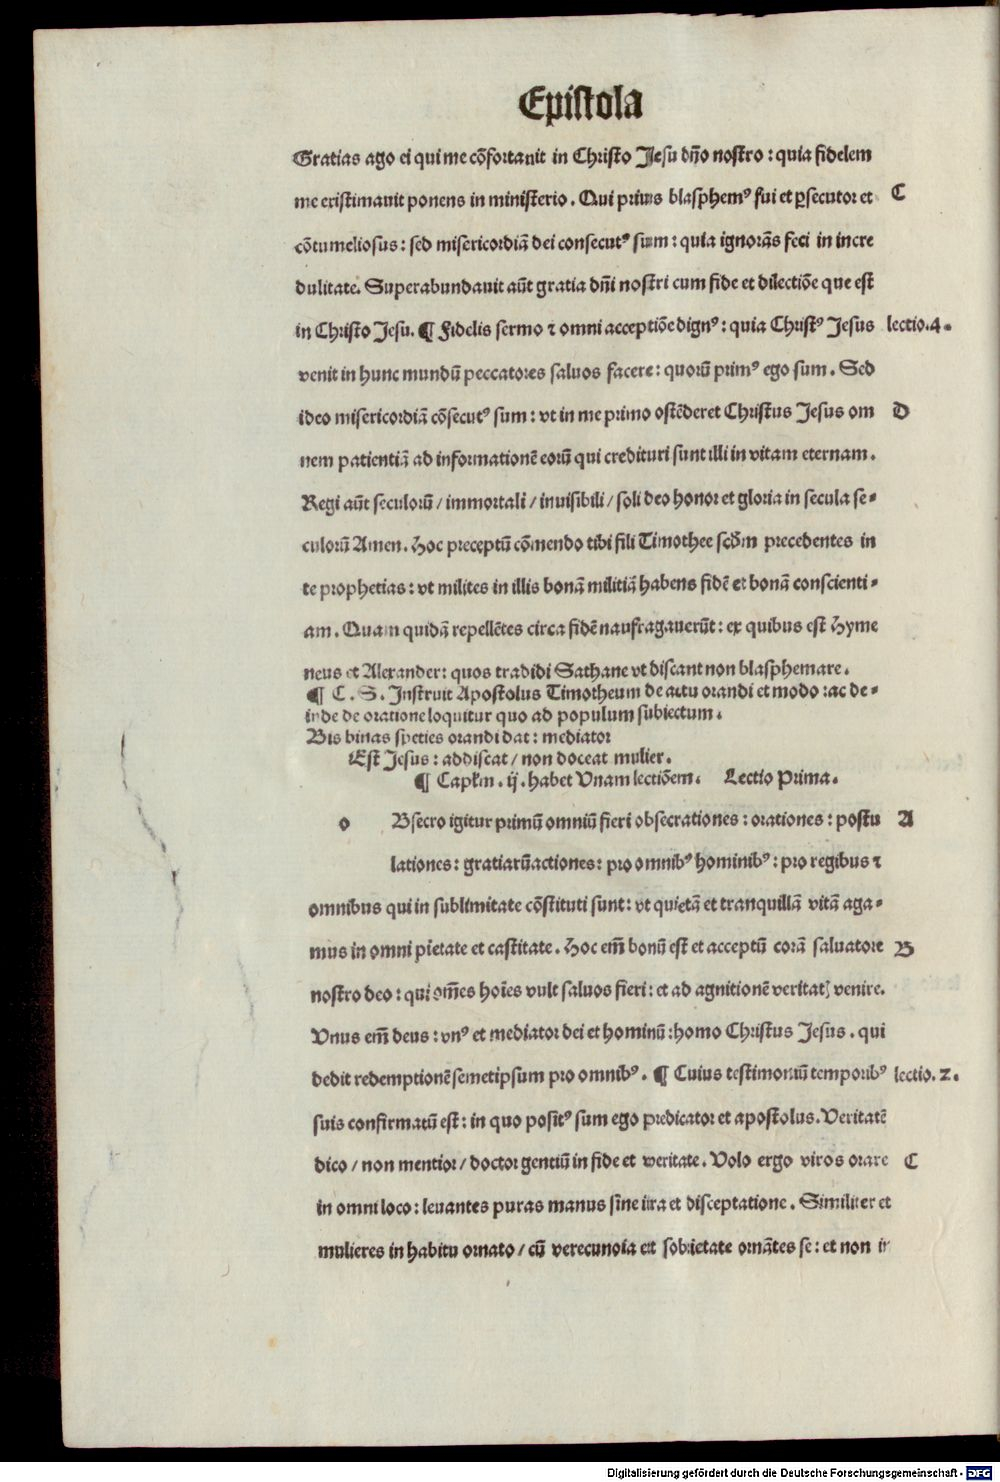 Epistola
Gratias ago ei qui me cōfortauit in Christo Jesu dño nostro : quia fidelem
me existimauit ponens in ministerio . Qui prius blasphemꝰ fui et ꝑsecutor et C
cōtumeliosus : sed misericordiā dei consecutꝰ sum : quia ignorās feci in incre
dulitate. Superabundauit aūt gratia dñi nostri cum fide et dilectiōe que est
in Christo Jesu. ¶ Fidelis sermo ⁊ omni acceptiōe dignꝰ : quia Christꝰ Jesus lectio.4.
venit in hunc mundū peccatores saluos facere : quorū primꝰ ego sum . Sed
ideo misericordiā cōsecutꝰ sum : vt in me primo ostēderet Christus Jesus om D
nem patientiā ad informationē eorū qui credituri sunt illi in vitam eternam .
Regi aūt seculorū / immortali / inuisibili / soli deo honor et gloria in secula se⸗
culorū Amen . Hoc preceptū cōmendo tibi fili Timothee scďm precedentes in
te prophetias : vt milites in illis bonā militiā habens fidē et bonā conscienti⸗
am . Quam quidā repellētes circa fidē naufragauerūt : ex quibus est Hyme
neus et Alexander : quos tradidi Sathane vt discant non blasphemare .
¶ C . S . Instruit Apostolus Timotheum de actu orandi et modo : ac de⸗
inde de oratione loquitur quo ad populum subiectum .
Bis binas species orandi dat : mediator
Est Jesus : addiscat / non doceat mulier .
¶ Capľm . ij . habet Vnam lectiōem . Lectio Prima .
o Bsecro igitur primū omniū fieri obsecrationes : orationes : postu A
lationes : gratiarū actiones : pro omnibꝰ hominibꝰ : pro regibus ⁊
omnibus qui in sublimitate cōstituti sunt : vt quietā et tranquillā vitā aga⸗
mus in omni pietate et castitate . Hoc em̄ bonū est et acceptū corā saluatore B
nostro deo : qui om̄es hoīes vult saluos fieri : et ad agnitionē veritatꝭ venire.
Vnus em̄ deus : vnꝰ et mediator dei et hominū : homo Christus Jesus . qui
dedit redemptionē semetipsum pro omnibꝰ . ¶ Cuius testimoniū temporibꝰ lectio.2.
suis confirmatū est : in quo positꝰ sum ego predicator et apostolus. Veritatē
dico / non mentior / doctor gentiū in fide et veritate . Volo ergo viros orare C
in omni loco : leuantes puras manus sine ira et disceptatione . Similiter et
mulieres in habitu ornato / cū verecundia et sobrietate ornātes se : et non in
Digitalisierung gefördert durch die Deutsche Forschungsgemeinschaft - DFG